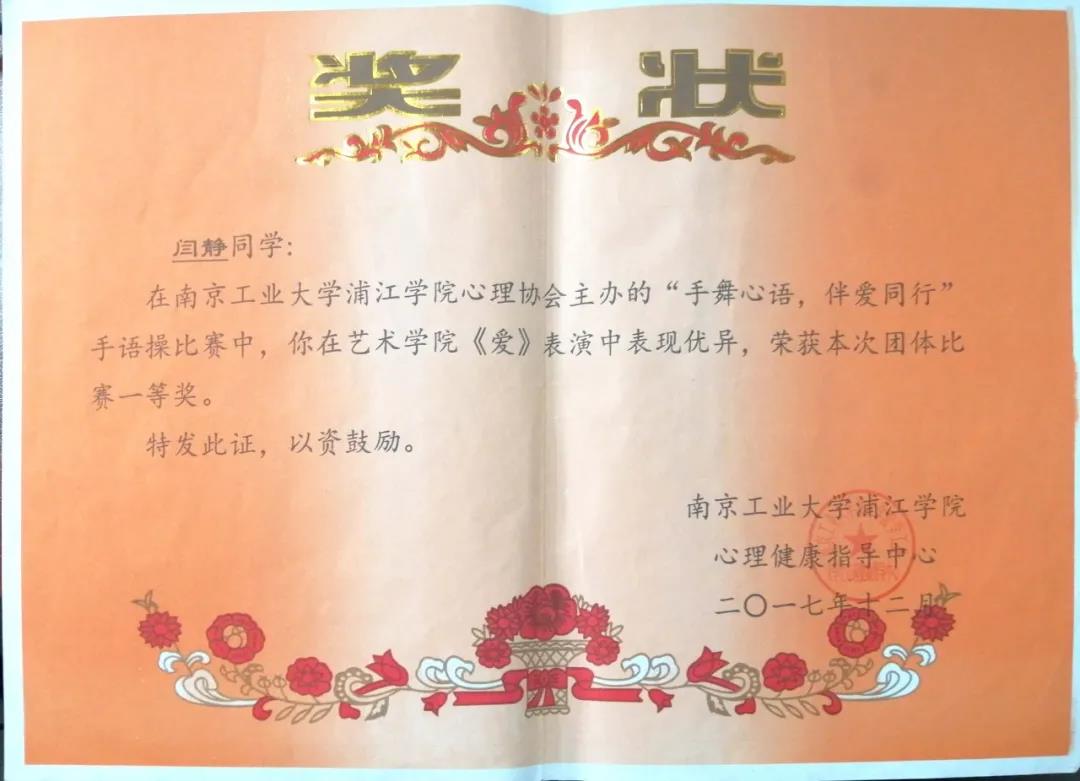 奖状
闫静同学：
在南京工业大学浦江学院心理协会主办的“手舞心语，伴爱同行”
手语操比赛中，你在艺术学院《爱》表演中表现优异，荣获本次团体比
赛一等奖。
特发此证，以资鼓励。
南京工业大学浦江学院
心理健康指导中心
二〇一七年十二月